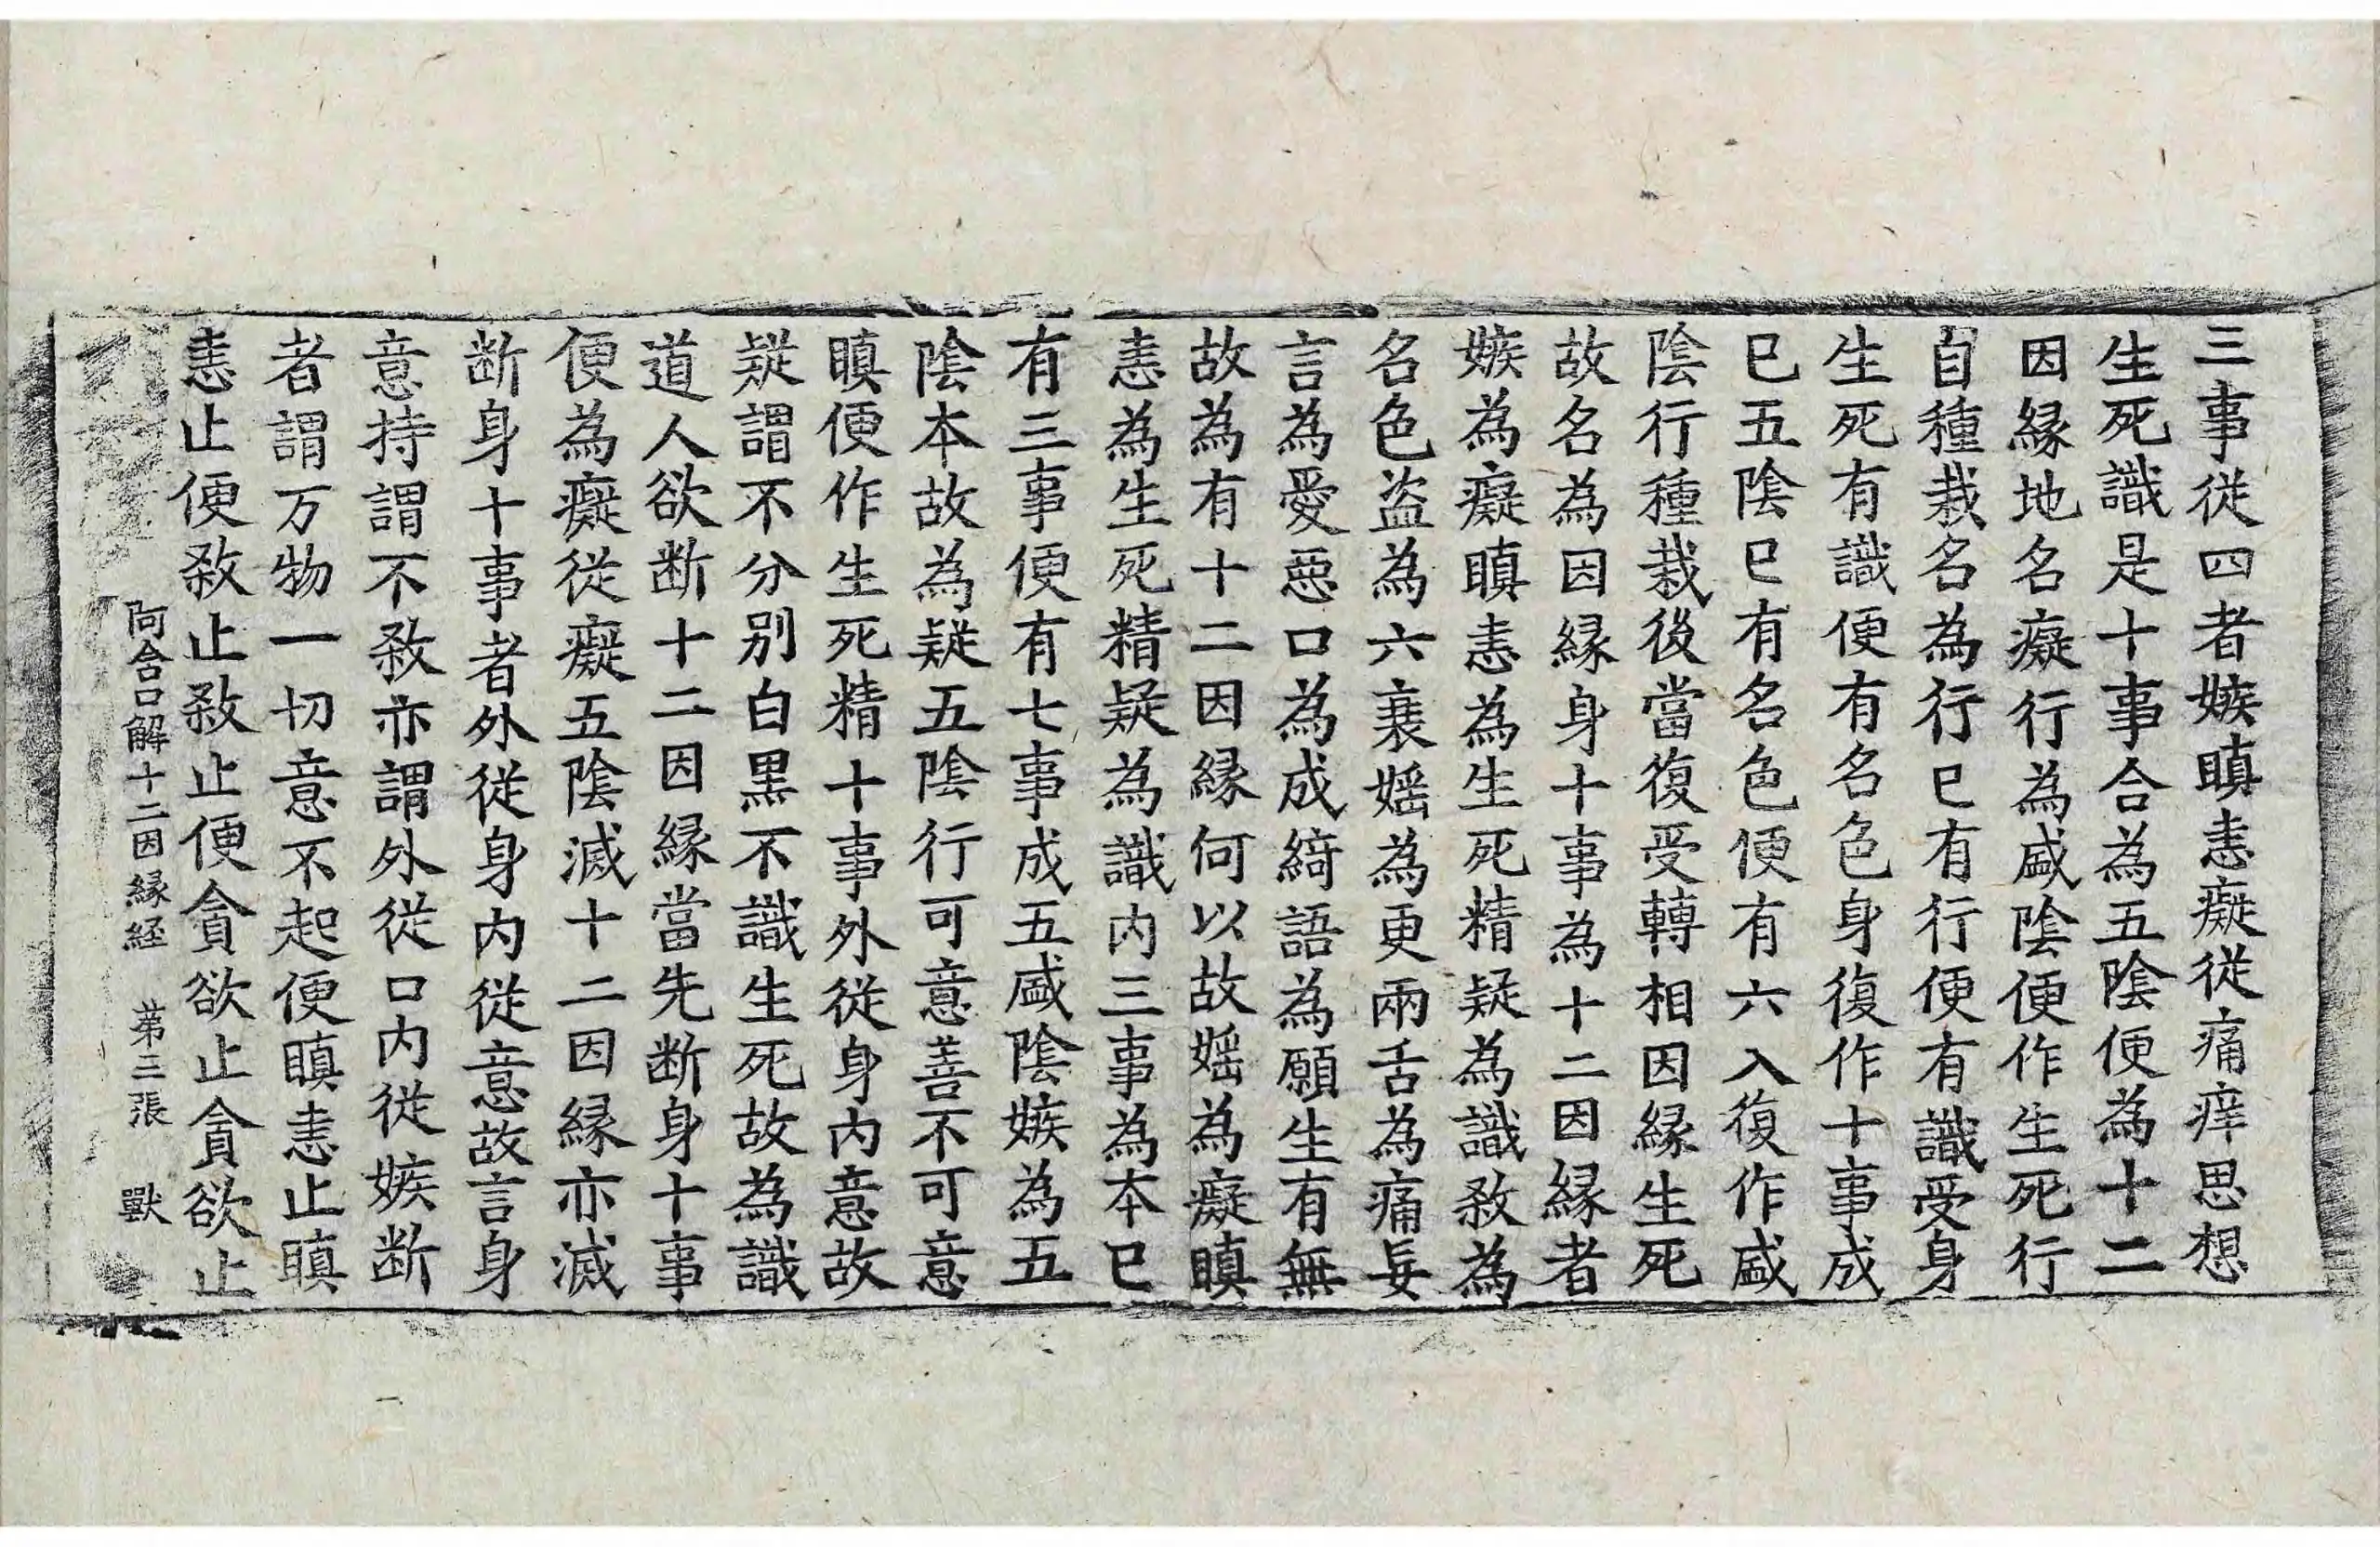 三事従四者嫉瞋恚癡従痛痒思想
生死識是十事合為五陰便為十二
因縁地名癡行為盛陰便作生死行
自種栽名為行已有行便有識受身
生死有識便有名色身復作十事成
已五陰已有名色便有六入復作盛
陰行種栽後當復受轉相因縁生死
故名為因縁身十事為十二因縁者
嫉為癡瞋恚為生死精疑為識敘為
名色盗為六衰婬為更兩舌為痛妄
言為愛惡口為成綺語為願生有無
故為有十二因縁何以故婬為癡瞋
恚為生死精疑為識内三事為本已
有三事便有七事成五盛陰嫉為五
陰本故為疑五陰行可意善不可意
瞋便作生死精十事外従身内意故
疑謂不分别白黒不識生死故為識
道人欲断十二因縁當先断身十事
便為癡従癡五陰滅十二因縁亦滅
断身十事者外従身内従意故言身
意持謂不敘亦謂外従口内従嫉断
者謂万物一切意不起便瞋恚止瞋
恚止便敘止敘止便貪欲止貪欲止
阿含口解十二因縁経 苐三張 獸